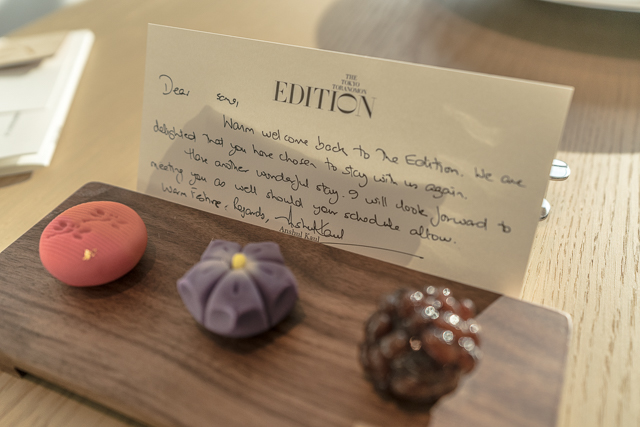 THE
TOKYO
TORANOMON
EDITION
Dear sons,
Warm welcome back to The Edition. We are
delighted that you have chosen to stay with us again.
Have another wonderful stay. I will look forward to
meeting you as well should your schedule allow.
Warm Festive Regards, Anshul Kaul
Anshul Kaul